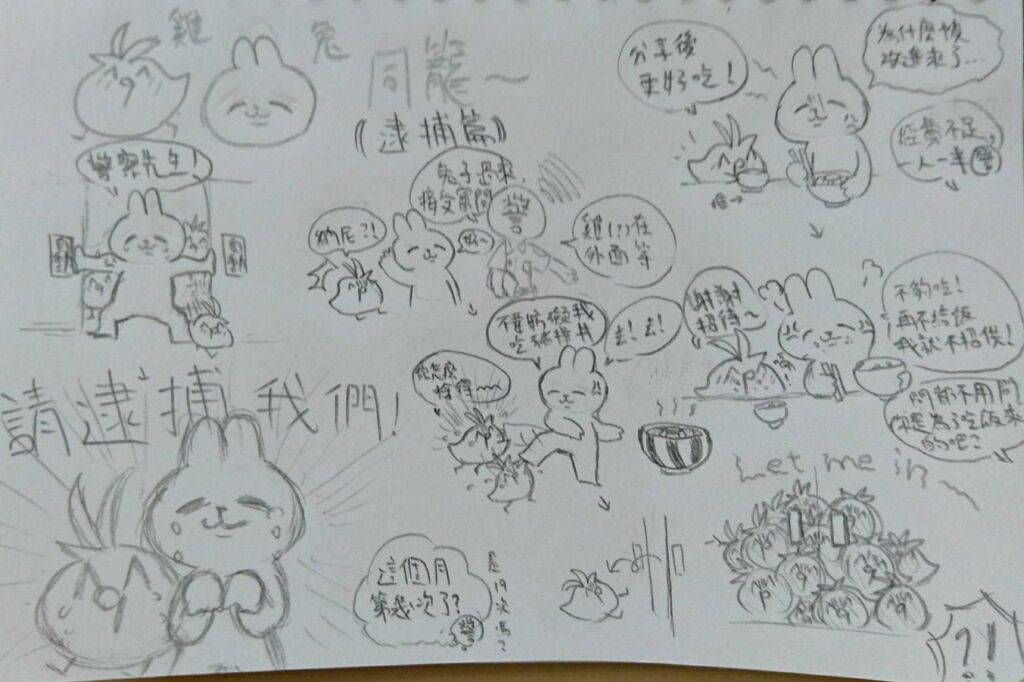 雞
兔
同籠~
(逮捕篇)
警察先生!
自動
自動
請逮捕我們!
這個月
第幾次了?
警
是19次嗎?
兔子過來
接受質問
警
好~
納尼?!
雞(?)在
外面等
不要妨礙我
吃豬排丼
去!去!
你怎麼
捨得~~
分享後
更好吃!
為什麼被
放進來了…
經費不足
一人一半
警
唯→
謝謝
招待~
不夠吃!
再不給飯
我就不招供!
問都不用問
就是為了吃飯來
的吧?
Let me in~
?!